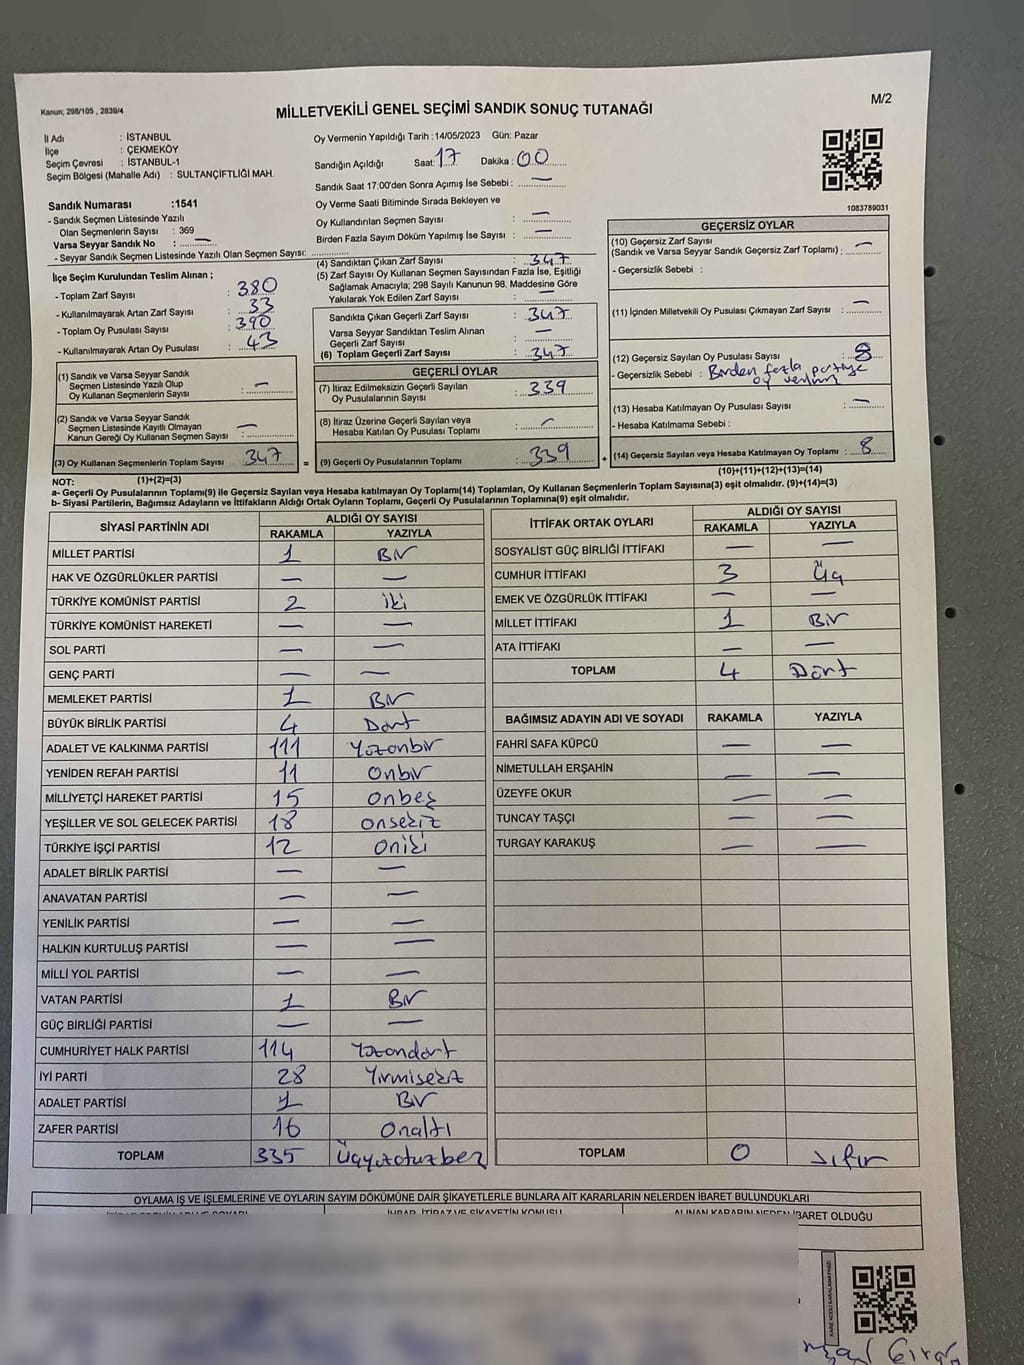 Kanun; 298/105 , 2839/4
MİLLETVEKİLİ GENEL SEÇİMİ SANDIK SONUÇ TUTANAĞI
M/2
İl Adı : İSTANBUL
İlçe : ÇEKMEKÖY
Seçim Çevresi : İSTANBUL-1
Seçim Bölgesi (Mahalle Adı) : SULTANÇİFTLİĞİ MAH.
Oy Vermenin Yapıldığı Tarih :14/05/2023 Gün: Pazar
Sandığın Açıldığı Saat: 17 Dakika : 00
Sandık Saat 17:00'den Sonra Açımış İse Sebebi : —
Oy Verme Saati Bitiminde Sırada Bekleyen ve
Oy Kullandırılan Seçmen Sayısı : —
Birden Fazla Sayım Döküm Yapılmış İse Sayısı : —
1083789031
Sandık Numarası :1541
- Sandık Seçmen Listesinde Yazılı
Olan Seçmenlerin Sayısı : 369
Varsa Seyyar Sandık No : —
- Seyyar Sandık Seçmen Listesinde Yazılı Olan Seçmen Sayısı:
İlçe Seçim Kurulundan Teslim Alınan ;
- Toplam Zarf Sayısı : 380
- Kullanılmayarak Artan Zarf Sayısı : 33
- Toplam Oy Pusulası Sayısı : 390
- Kullanılmayarak Artan Oy Pusulası : 43
(1) Sandık ve Varsa Seyyar Sandık
Seçmen Listesinde Yazılı Olup
Oy Kullanan Seçmenlerin Sayısı : —
(2) Sandık ve Varsa Seyyar Sandık
Seçmen Listesinde Kayıtlı Olmayan
Kanun Gereği Oy Kullanan Seçmen Sayısı : —
(3) Oy Kullanan Seçmenlerin Toplam Sayısı : 347
(1)+(2)=(3)
(4) Sandıktan Çıkan Zarf Sayısı : 347
(5) Zarf Sayısı Oy Kullanan Seçmen Sayısından Fazla İse, Eşitliği
Sağlamak Amacıyla; 298 Sayılı Kanunun 98. Maddesine Göre
Yakılarak Yok Edilen Zarf Sayısı : —
Sandıkta Çıkan Geçerli Zarf Sayısı : 347
Varsa Seyyar Sandıktan Teslim Alınan
Geçerli Zarf Sayısı : —
(6) Toplam Geçerli Zarf Sayısı : 347
GEÇERLİ OYLAR
(7) İtiraz Edilmeksizin Geçerli Sayılan
Oy Pusulalarının Sayısı : 339
(8) İtiraz Üzerine Geçerli Sayılan veya
Hesaba Katılan Oy Pusulası Toplamı : —
= (9) Geçerli Oy Pusulalarının Toplamı : 339 +
GEÇERSİZ OYLAR
(10) Geçersiz Zarf Sayısı
(Sandık ve Varsa Seyyar Sandık Geçersiz Zarf Toplamı) : —
- Geçersizlik Sebebi :
(11) İçinden Milletvekili Oy Pusulası Çıkmayan Zarf Sayısı : —
(12) Geçersiz Sayılan Oy Pusulası Sayısı : 8
- Geçersizlik Sebebi : Birden fazla partiye
oy verilmiş
(13) Hesaba Katılmayan Oy Pusulası Sayısı : —
- Hesaba Katılmama Sebebi :
(14) Geçersiz Sayılan veya Hesaba Katılmayan Oy Toplamı : 8
(10)+(11)+(12)+(13)=(14)
NOT:
a- Geçerli Oy Pusulalarının Toplamı(9) ile Geçersiz Sayılan veya Hesaba katılmayan Oy Toplamı(14) Toplamları, Oy Kullanan Seçmenlerin Toplam Sayısına(3) eşit olmalıdır. (9)+(14)=(3)
b- Siyasi Partilerin, Bağımsız Adayların ve İttifakların Aldığı Ortak Oyların Toplamı, Geçerli Oy Pusulalarının Toplamına(9) eşit olmalıdır.
SİYASİ PARTİNİN ADI ALDIĞI OY SAYISI
RAKAMLA YAZIYLA
MİLLET PARTİSİ 1 Bir
HAK VE ÖZGÜRLÜKLER PARTİSİ — —
TÜRKİYE KOMÜNİST PARTİSİ 2 iki
TÜRKİYE KOMÜNİST HAREKETİ — —
SOL PARTİ — —
GENÇ PARTİ — —
MEMLEKET PARTİSİ 1 Bir
BÜYÜK BİRLİK PARTİSİ 4 Dört
ADALET VE KALKINMA PARTİSİ 111 Yüzonbir
YENİDEN REFAH PARTİSİ 11 Onbir
MİLLİYETÇİ HAREKET PARTİSİ 15 onbeş
YEŞİLLER VE SOL GELECEK PARTİSİ 18 onsekiz
TÜRKİYE İŞÇİ PARTİSİ 12 Oniki
ADALET BİRLİK PARTİSİ — —
ANAVATAN PARTİSİ — —
YENİLİK PARTİSİ — —
HALKIN KURTULUŞ PARTİSİ — —
MİLLİ YOL PARTİSİ — —
VATAN PARTİSİ 1 Bir
GÜÇ BİRLİĞİ PARTİSİ — —
CUMHURİYET HALK PARTİSİ 114 Yüzondört
İYİ PARTİ 28 Yirmisekiz
ADALET PARTİSİ 1 Bir
ZAFER PARTİSİ 16 Onaltı
TOPLAM 335 Üçyüzotuzbeş
İTTİFAK ORTAK OYLARI ALDIĞI OY SAYISI
RAKAMLA YAZIYLA
SOSYALİST GÜÇ BİRLİĞİ İTTİFAKI — —
CUMHUR İTTİFAKI 3 Üç
EMEK VE ÖZGÜRLÜK İTTİFAKI — —
MİLLET İTTİFAKI 1 Bir
ATA İTTİFAKI — —
TOPLAM 4 Dört
BAĞIMSIZ ADAYIN ADI VE SOYADI RAKAMLA YAZIYLA
FAHRİ SAFA KÜPCÜ — —
NİMETULLAH ERŞAHİN — —
ÜZEYFE OKUR — —
TUNCAY TAŞÇI — —
TURGAY KARAKUŞ — —
TOPLAM 0 sıfır
OYLAMA İŞ VE İŞLEMLERİNE VE OYLARIN SAYIM DÖKÜMÜNE DAİR ŞİKAYETLERLE BUNLARA AİT KARARLARIN NELERDEN İBARET BULUNDUKLARI
İHBAR, İTİRAZ VE ŞİKAYETİN KONUSU
ALINAN KARARIN NEDEN İBARET OLDUĞU
KARE KODU KARALAMAYINIZ!